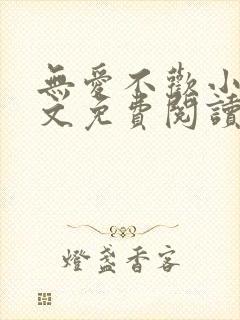 無愛不歡小
文免費閱讀
燈盞香客